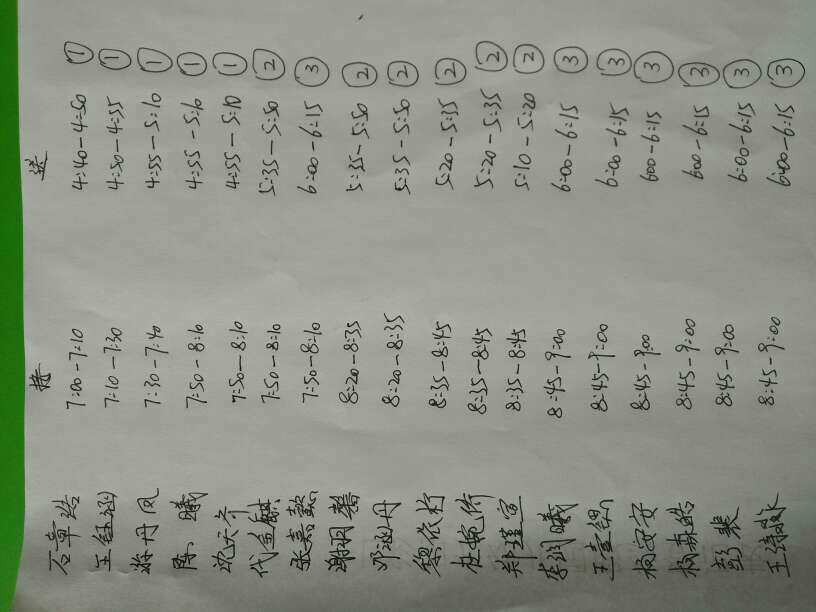 接 送
石章浩 7:00-7:10 4:40-4:50 ①
王钰涵 7:10-7:30 4:50-4:55 ①
蒋丹凤 7:30-7:40 4:55-5:10 ①
陈曦 7:50-8:10 4:55-5:10 ①
7:50-8:10 4:55-5:10 ①
代金麒 7:50-8:10 5:35-5:50 ②
张嘉懿 7:50-8:10 6:00-6:15 ③
谢羽馨 8:20-8:35 5:35-5:50 ②
邓涵丹 8:20-8:35 5:35-5:50 ②
黎依柠 8:35-8:45 5:20-5:35 ②
杜婉伶 8:35-8:45 5:20-5:35 ②
郑瑾萱 8:35-8:45 5:10-5:20 ②
李润曦 8:45-9:00 6:00-6:15 ③
王 8:45-9:00 6:00-6:15 ③
杨安安 8:45-9:00 600-6:15 ③
杨森皓 8:45-9:00 600-6:15 ③
彭裴 8:45-9:00 6:00-6:15 ③
王 8:45-9:00 6:00-6:15 ③